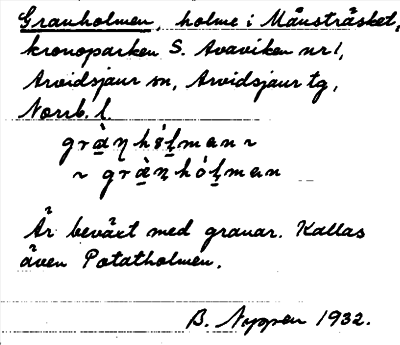 Granholmen, holme i Månsträsket,
kronoparken S. Avaviken nr 1,
Arvidsjaur sn, Arvidsjaur tg,
Norrb. l.
gràn hó̀lman ~
~ gràn hólman
Är beväxt med granar. Kallas
även Potatholmen.
B. Nyppen 1932.